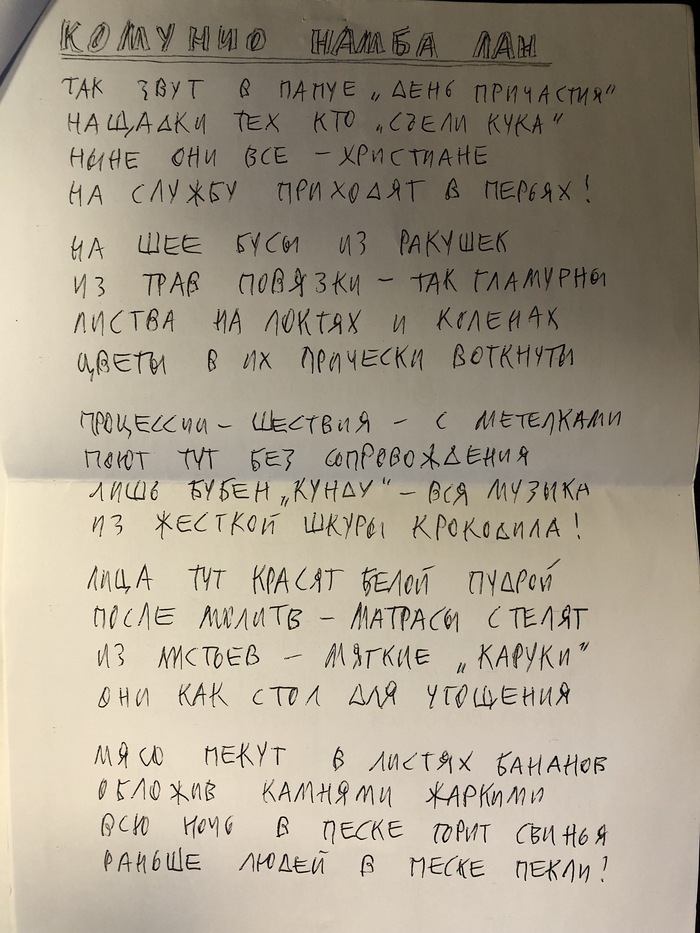 КОМУНИО НАМБА ЛАН
ТАК ЗВУТ В ПАПУЕ „ДЕНЬ ПРИЧАСТИЯ"
НАЩАДКИ ТЕХ КТО „СЪЕЛИ КУКА"
НЫНЕ ОНИ ВСЕ – ХРИСТИАНЕ
НА СЛУЖБУ ПРИХОДЯТ В ПЕРЬЯХ!
НА ШЕЕ БУСЫ ИЗ РАКУШЕК
ИЗ ТРАВ ПОВЯЗКИ – ТАК ГЛАМУРНЫ
ЛИСТВА НА ЛОКТЯХ И КОЛЕНАХ
ЦВЕТЫ В ИХ ПРИЧЕСКИ ВОТКНУТЫ
ПРОЦЕССИИ – ШЕСТВИЯ – С МЕТЕЛКАМИ
ПОЮТ ТУТ БЕЗ СОПРОВОЖДЕНИЯ
ЛИШЬ БУБЕН „КУНДУ" – ВСЯ МУЗЫКА
ИЗ ЖЕСТКОЙ ШКУРЫ КРОКОДИЛА!
ЛИЦА ТУТ КРАСЯТ БЕЛОЙ ПУДРОЙ
ПОСЛЕ МОЛИТВ – МАТРАСЫ СТЕЛЯТ
ИЗ ЛИСТЬЕВ – МЯГКИЕ „КАРУКИ"
ОНИ КАК СТОЛ ДЛЯ УГОЩЕНИЯ
МЯСО ПЕКУТ В ЛИСТЯХ БАНАНОВ
ОБЛОЖИВ КАМНЯМИ ЖАРКИМИ
ВСЮ НОЧЬ В ПЕСКЕ ГОРИТ СВИНЬЯ
РАНЬШЕ ЛЮДЕЙ В ПЕСКЕ ПЕКЛИ!